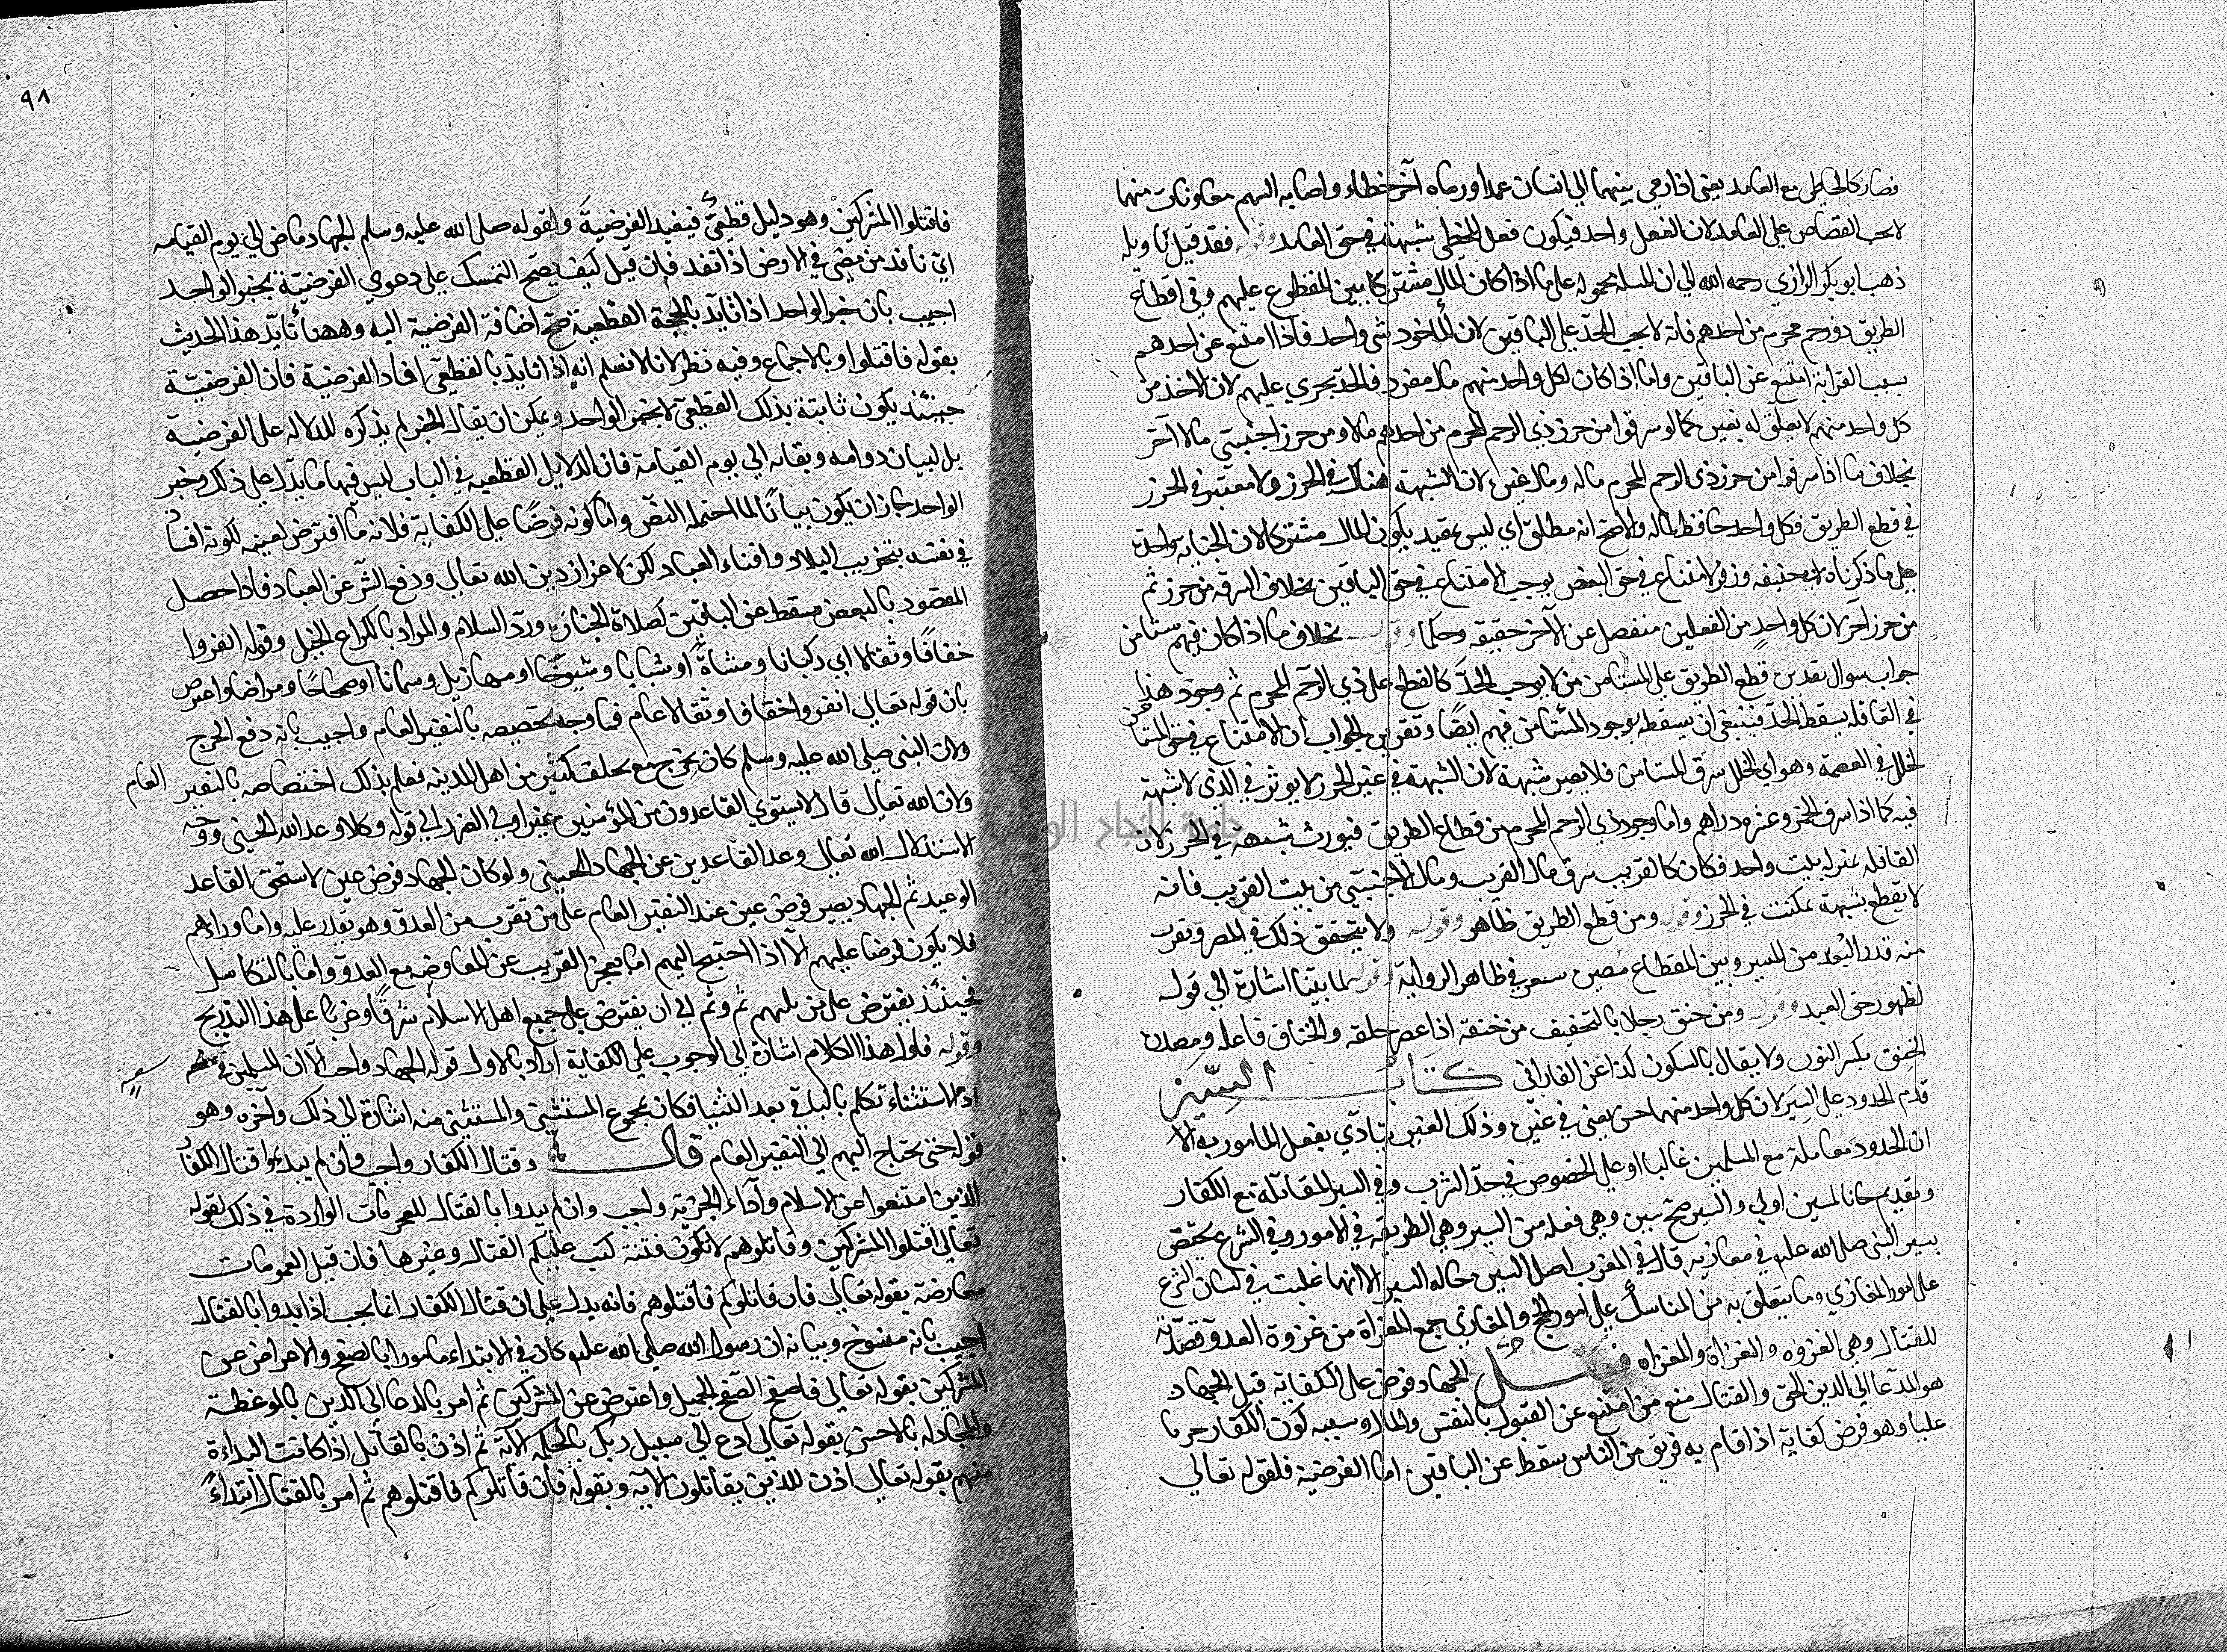 فصار كالخاطي مع العامد يعني اذا رمي سهما الي انسان عمدا ورماه آخر خطاء واصابه السهم معا ومات منهما
لا يجب القصاص علي العامد لان الفعل واحد فيكون فعل المخطي شبهة في حق العامد وقوله فقد قيل تاويله
ذهب ابو بكر الرازي رحمه الله الي ان المسله محموله على ما اذا كان المال مشتركا بين المقطوع عليهم وفي اقطاع
الطريق ذو رحم محرم من احدهم فانه لا يجب الحد علي الباقين لان المأخوذ شي واحد فاذا امتنع عن احدهم
بسبب القرابة امتنع عن الباقين واما اذا كان لكل واحد منهم مال مفرد فالحد يجري عليهم لان الاخذ من
كل واحد منهم لا يتعلق له بغيره كما لو سرقوا من حرز ذي الرحم المحرم من احدهم مالا ومن حرز اجنبي مالا آخر
بخلاف ما اذا سرقوا من حرز ذي الرحم المحرم ماله ومال غيره لان الشبهة هناك في الحرز ولا معتبر في الحرز
في قطع الطريق فكل واحد حافظ لماله والاصح انه مطلق اي ليس بمقيد بكون المال مشتركا لان الجناية واحدة
علي ما ذكرناه لابي حنيفه وزفر الامتناع في حق البعض يوجب الامتناع في حق الباقين بخلاف السرقه من حرز ثم
من حرز آخر لان كل واحد من الفعلين منفصل عن الآخر حقيقه وحكما وقوله بخلاف ما اذا كان فيهم مستامن
جواب سوال تقديره قطع الطريق علي المستامن لا يوجب الحد كالقطع على ذي الرحم المحرم ثم وجود هذا
في القافله يسقط الحد فينبغي ان يسقطه بوجود المستامن فيهم ايضا وتقرير الجواب ان الامتناع في حق المستامن
لخلل في العصمة وهو اي الخلل سرق المستامن فلا يصير شبهة لان الشبهة في غير الحرز لا يوثر في الذي لا شبهة
فيه كما اذا سرق الخمر وعشره دراهم واما وجود ذي الرحم المحرم من قطاع الطريق فيورث شبهة في الحرز لان
القافله بمنزله بيت واحد فكان كالقريب سرق مال القريب ومال الاجنبي من بيت القريب فانه
لا يقطع بشبهة تمكنت في الحرز وقوله ومن قطع الطريق ظاهر وقوله ولا يتحقق ذلك في المصر وتقرب
منه قدر البُعد من المسير وبين القطاع مصر في ظاهر الرواية وقوله لما بينا اشارة الي قوله
لظهور حق العبد وقوله ومن خنق رجلا بالتخفيف من خنقه اذا عصر حلقه والخناق فاعله ومصدره
الخنِق بكسر النون ولا يقال بالسكون كذا عن الفارابي كتاب السِّيَر
قدم الحدود علي السير لان كل واحد منهما حسن لمعنى في غيره وذلك الغير يتادي بفعل المامور به الا
ان الحدود معاملة مع المسلمين غالبا او علي الخصوص في حد الشرب وفي السير المقاتلة مع الكفار
وتقديم ما للمسلمين اولي والسير جمع سيرة وهي فعله من السير وهي الطريقه في الامور وفي الشرع يختص
بسير النبي صلى الله عليه في مغازيه قال في المغرب اصل السيره حاله السير الا انها غلبت في لسان الشرع
علي امور المغازي وما يتعلق به من المناسك علي امور الحج والمغازي جمع المغزاة من غزوة العدو قصدته
للقتال وهي الغزوه والغزاة والمغزاه فصل الجهاد فرض علي الكفاية قيل الجهاد
هو الدعا الي الدين الحق والقتال مع من امتنع عن القبول بالنفس والمال وسببه كون الكفار حربا
علينا وهو فرض كفاية اذا قام به فريق من الناس سقط عن الباقين اما الفرضية فلقوله تعالي
٩٨
فاقتلوا المشركين وهو دليل قطعي فيفيد الفرضية ولقوله صلى الله عليه وسلم الجهاد ماض الي يوم القيامه
اي نافذ من مضي في الارض اذا نفذ فان قيل كيف يصح التمسك على دعوي الفرضية بخبر الواحد
اجيب بان خبر الواحد اذا تايد بالحجة القطعية صح اضافة الفرضية اليه وههنا تأيد هذا الحديث
بقوله فاقتلوا وبالاجماع وفيه نظر لانا لا نسلم انه اذا تايد بالقطعي افاد الفرضية فان الفرضية
حينئذ يكون ثابتة بذلك القطعي لا بخبر الواحد ويمكن ان يقال الخبر لم يذكره للدلاله على الفرضية
بل لبيان دوامه وبقائه الي يوم القيامة فان الدلايل القطعيه في الباب ليس فيها ما يدل علي ذلك وخبر
الواحد جاز ان يكون بيانًا لما احتمله النص واما كونه فرضًا علي الكفاية فلانه ما افترض لعينه لكونه افسادا
في نفسه بتخريب البلاد وافناء العباد لكن لاعزاز دين الله تعالي ودفع الشر عن العباد فاذا حصل
المقصود بالبعض سقط عن الباقين كصلاة الجنازة ورد السلام والمراد بالكراع الخيل وقوله انفروا
خفافًا وثقالا اي ركبانا ومشاةً او شبابا وشيوخًا او مهازيل وسمانا او صحاحًا ومراضا واعترض
بان قوله تعالي انفروا خفافا وثقالا عام فما وجه تخصيصه بالنفير العام واجيب بانه دفع الحرج
ولان النبي صلى الله عليه وسلم كان يخرج مع تخلف كثير من اهل المدينه فعلم بذلك اختصاصه بالنفير العام
ولان الله تعالي قال لا يستوي القاعدون من المؤمنين غير اولي الضرر الي قوله وكلا وعد الله الحسني ووجه
الاستدلال ان الله تعالي وعد القاعدين عن الجهاد الحسنى ولو كان الجهاد فرض عين لاستحق القاعد
الوعيد ثم الجهاد يصير فرض عين عند النفير العام على من تقرب من العدو وهو يقدر عليه واما من وراءهم
فلا يكون فرضا عليهم الا اذا احتيج اليهم اما بعجز القريب عن المقاومه مع العدو واما بالتكاسل
فحينئذ يفترض على من يليهم ثم وثم الي ان يفترض علي جميع اهل الاسلام شرقًا وغربًا على هذا التدريج
وقوله فاول هذا الكلام اشارة الي الوجوب علي الكفاية اراد بالاول قوله الجهاد واجب الا ان المسلمين في سعة
اذ الاستثناء تكلم بالباقي بعد الثنيا فكان مجموع المستثني والمستثني منه اشارة الي ذلك وآخره وهو
قوله حتى يحتاج اليهم الي النفير العام قال وقتال الكفار واجب وان لم يبدءوا قتال الكفار
الذين امتنعوا عن الاسلام واداء الجزية واجب وان لم يبدوا بالقتال للعمومات الواردة في ذلك كقوله
تعالي اقتلوا المشركين وقاتلوهم لا تكون فتنة كتب عليكم القتال وغيرها فان قيل العمومات
معارضة بقوله تعالي فان قاتلوكم فاقتلوهم فانه يدل علي ان قتال الكفار انما يجب اذا بدوا بالقتال
اجيب بانه منسوخ وبيانه ان رسول الله صلى الله عليه كان في الابتداء مامورا بالصفح والاعراض عن
المشركين بقوله تعالي فاصفح الصفح الجميل واعرض عن المشركين ثم امر بالدعا الى الدين بالموعظة
والمجادله بالاحسن بقوله تعالي ادع الي سبيل ربك بالحكمة الآية ثم اذن بالقتال اذا كانت البداءة
منهم بقوله تعالي اذن للذين يقاتلون الآيه وبقوله فان قاتلوكم فاقتلوهم ثم امر بالقتال ابتداءً
جامعة النجاح الوطنية